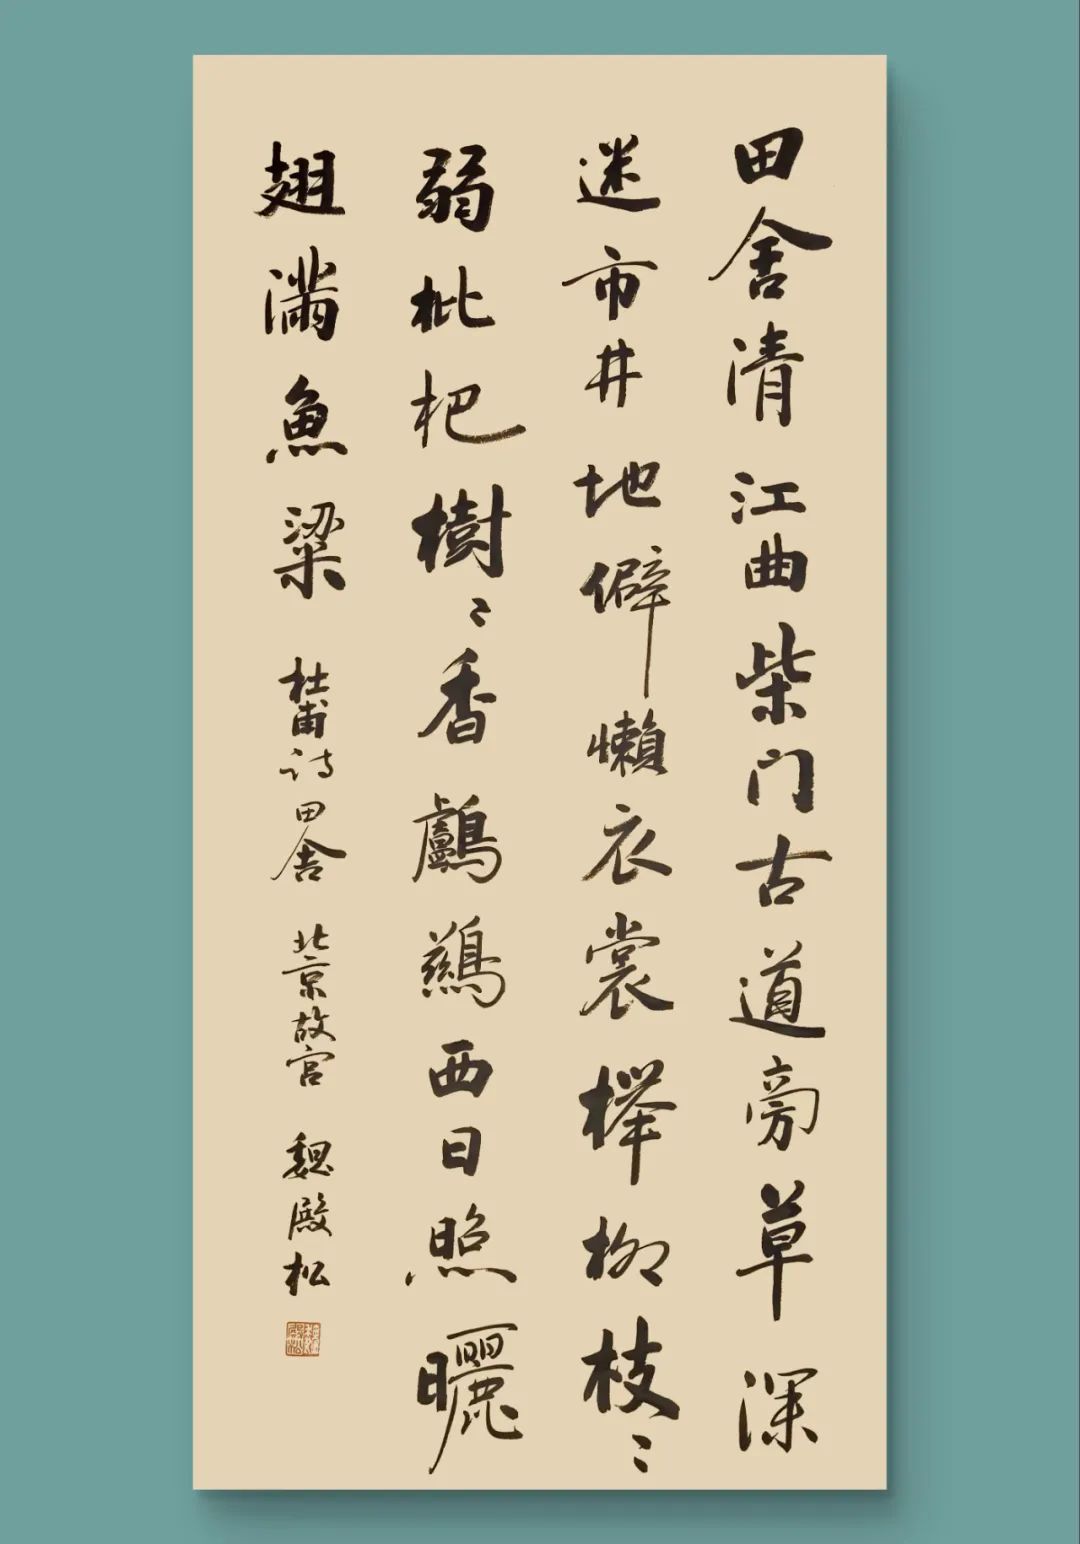 田舍清江曲柴门古道旁草深
迷市井地僻懒衣裳榉柳枝〻
弱枇杷樹〻香鸕鷀西日照曬
翅满魚梁 杜甫诗田舍 北京故宫 魏殿松